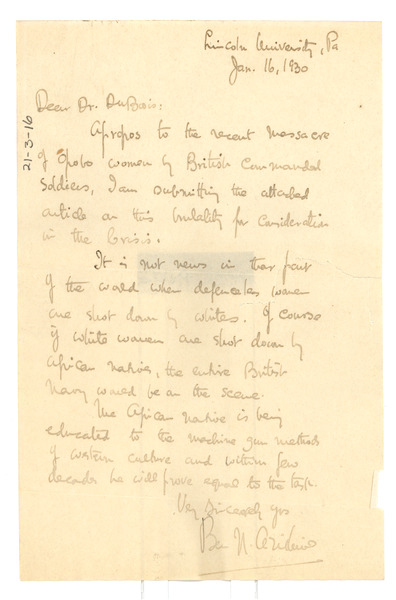 Lincoln University, Pa
Jan. 16, 1930
21-3-16
Dear Dr. DuBois:
Apropos to the recent massacre
of Opobo women by British Commanded
soldiers, I am submitting the attached
article on this brutality for consideration
in the Crisis.
It is not news in that part
of the world when defenceless women
are shot down by whites. Of course
if white women are shot down by
African natives, the entire British
Navy would be on the scene.
The African native is being
educated to the machine gun methods
of western culture and within few
decades he will prove equal to the task.
Very sincerely yrs
Ben N. Azikiwe